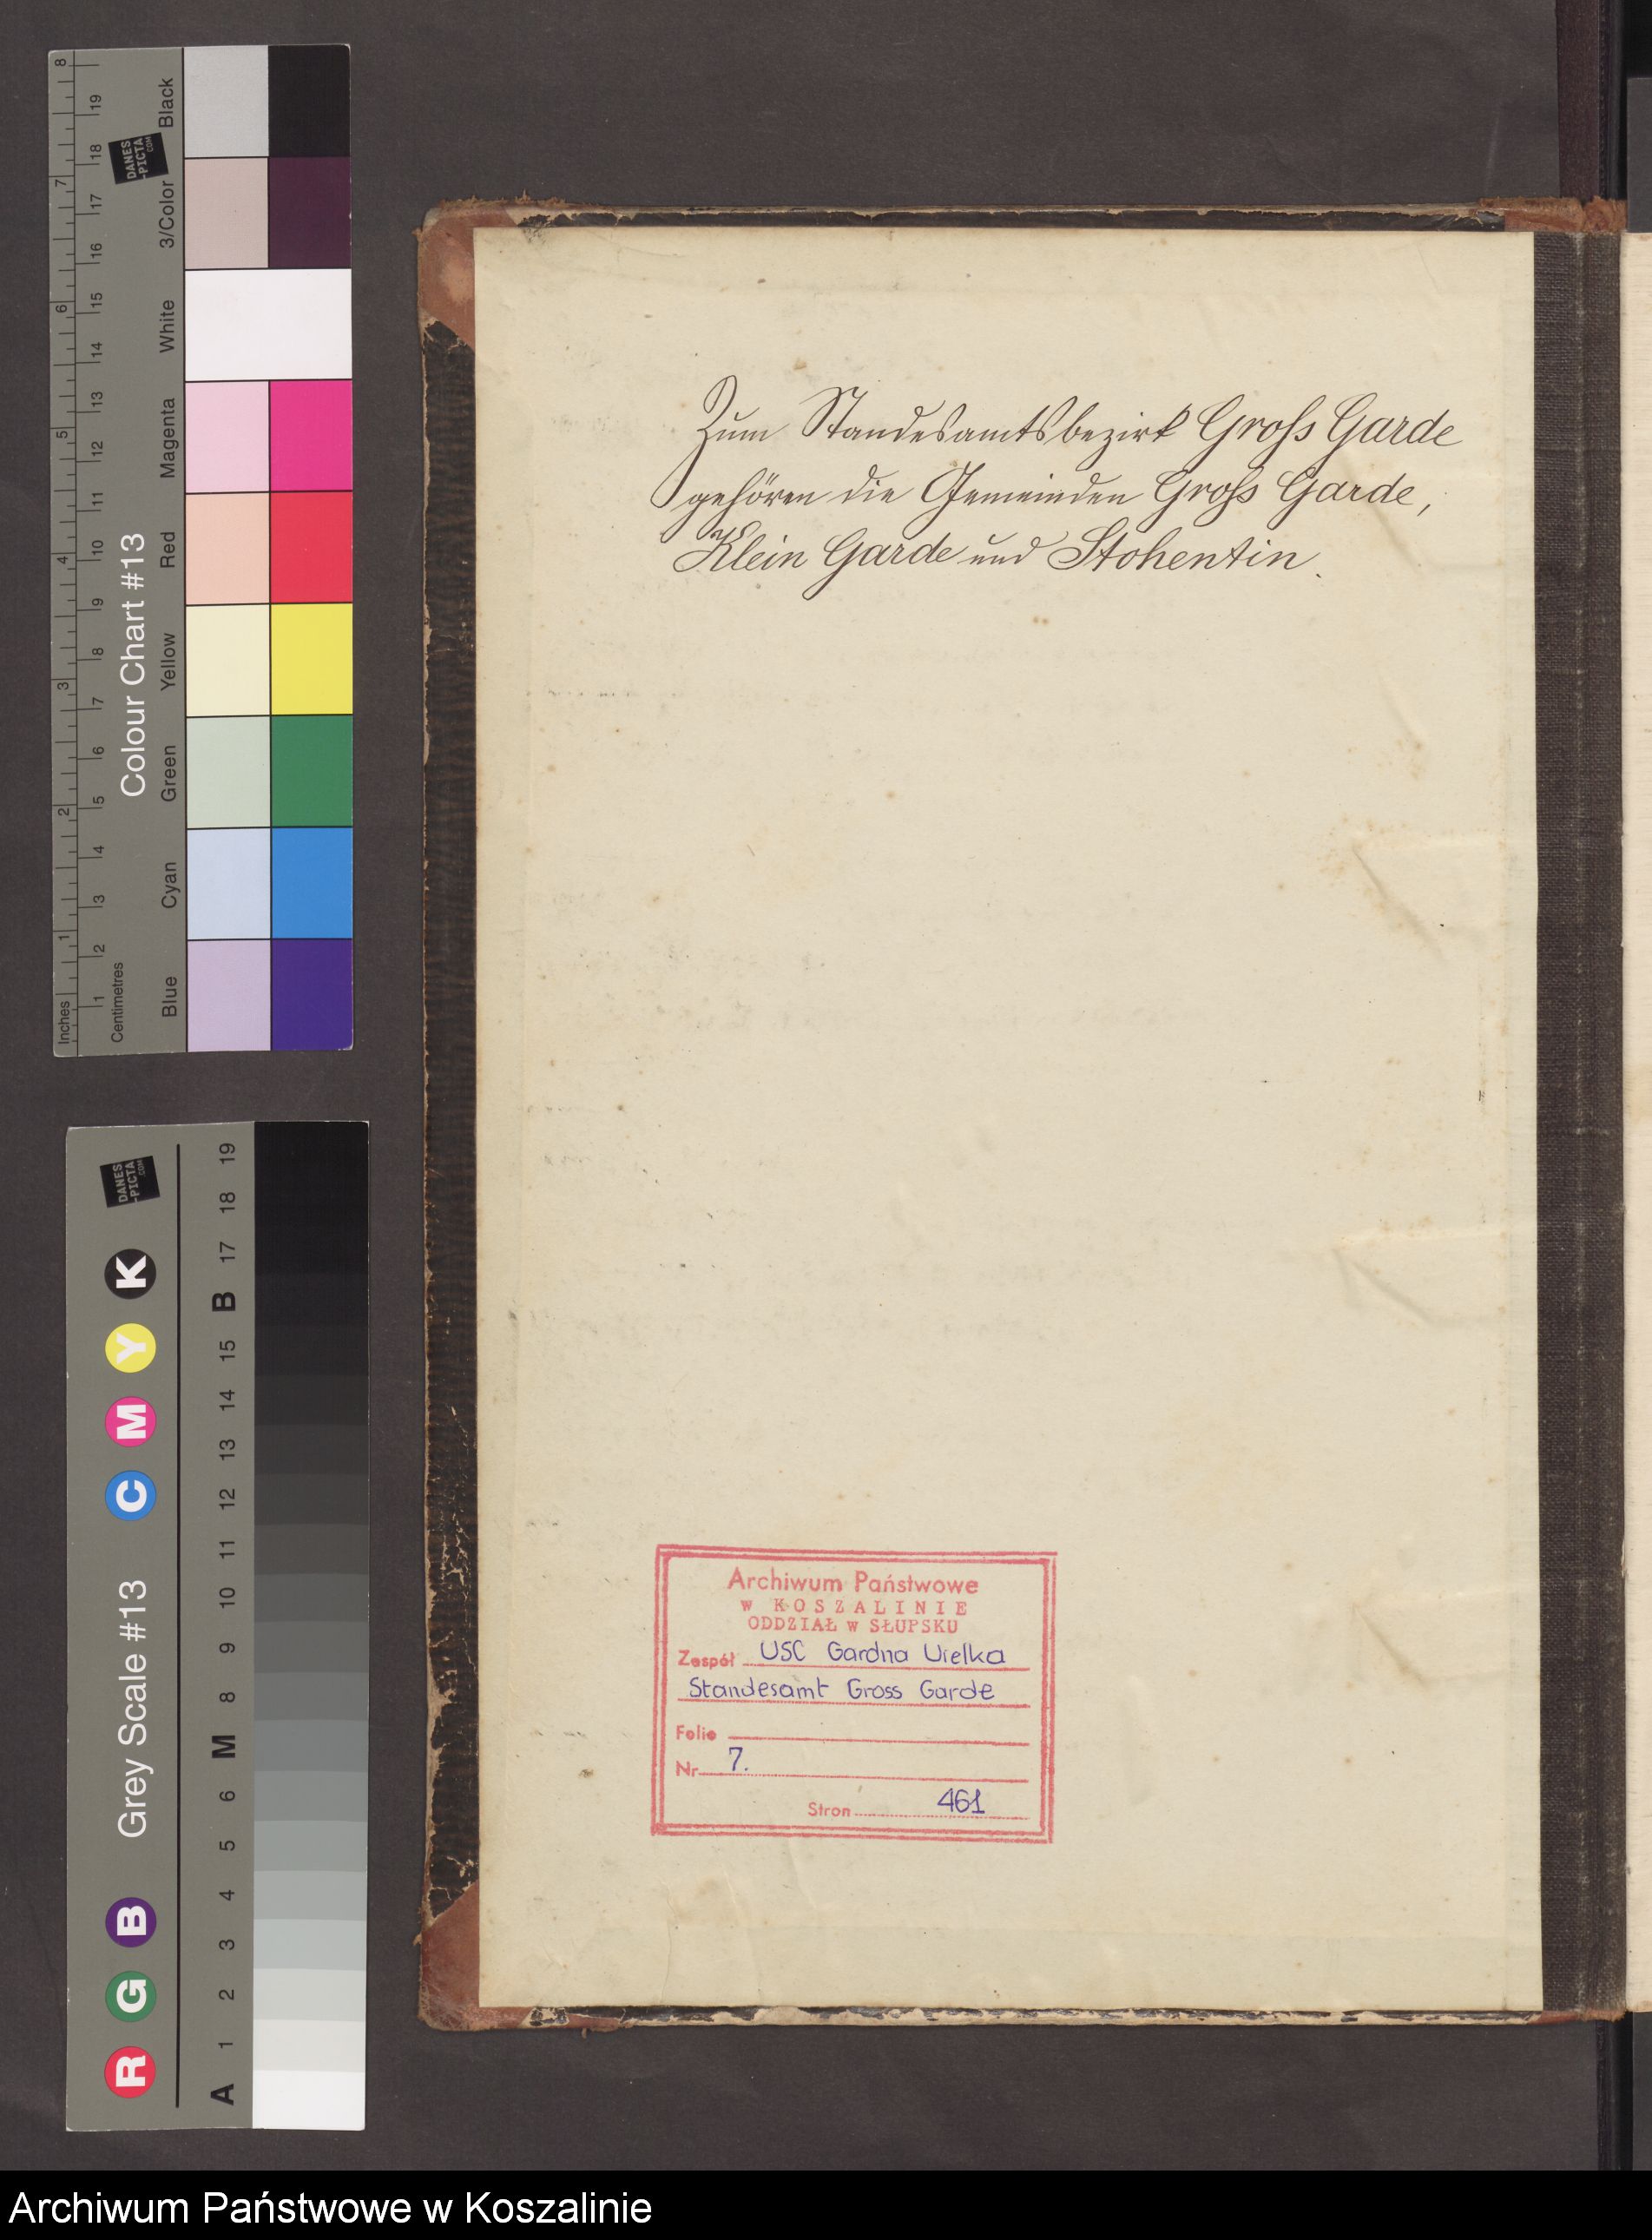 Zum Standesamtsbezirk Groß Garde
gehören die Gemeinden Groß Garde,
Klein Garde und Stohentin.
Archiwum Państwowe
w KOSZALINIE
ODDZIAŁ w SŁUPSKU
Zespół USC Gardna Wielka
Standesamt Gross Garde
Folio
Nr 7.
Stron 461
Inches
1 2 3 4 5 6 7 8
Centimetres
1 2 3 4 5 6 7 8 9 10 11 12 13 14 15 16 17 18 19
Colour Chart #13
Blue Cyan Green Yellow Red Magenta White 3/Color Black
DANES
-PICTA
.COM
R G B Grey Scale #13 C M Y K
DANES
-PICTA
.COM
A 1 2 3 4 5 6 M 8 9 10 11 12 13 14 15 B 17 18 19
Archiwum Państwowe w Koszalinie